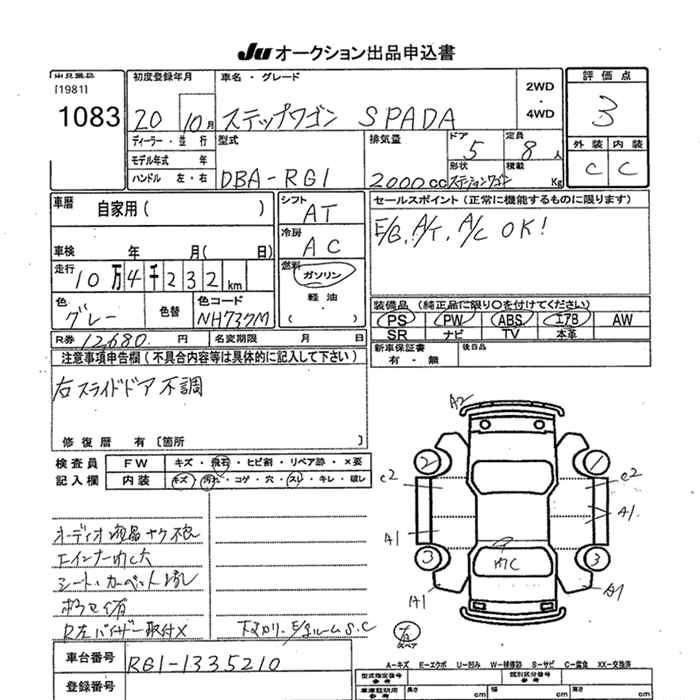 Ju オークション出品申込書
出品番号
[1981]
1083
初度登録年月
20 10月
車名・グレード
ステップワゴン SPADA
2WD
・
4WD
評価点
3
ディーラー・並行
モデル年式 年
ハンドル 左・右
型式
DBA-RG1
排気量
2000cc
ドア
5
定員
8人
形状
ステーションワゴン
積載
Kg
外装 内装
C C
車歴
自家用( )
シフト
AT
セールスポイント(正常に機能するものに限ります)
E/G, A/T, A/C OK!
車検 年 月( 日)
冷房
AC
走行
10万4千232km
燃料
ガソリン
軽油
・
( )
色
グレー
色替
色コード
NH737M
装備品(純正品に限り○を付けてください)
PS PW ABS エアB AW
SR ナビ TV 本革
R券 12,680 円
名変期限 月 日
新車保証書
有・無
後日品
注意事項申告欄(不具合内容等は具体的に記入して下さい)
右スライドドア不調
修復歴 有[箇所
検査員
記入欄
FW キズ・飛石・ヒビ割・リペア跡・×要
内装 キズ・汚れ・コゲ・穴・スレ・キレ・破レ
オーディオ液晶
シート・カーペット
R左バイザー取付X
下マワリ・E/gルームS.C
A2
2 1
C2 C2
A1 A1
3 3
A1 A1
スペア
車台番号
RG1-1335210
登録番号
A-キズ E-エクボ U-凹み W-補修跡 S-サビ C-腐食 XX-交換済
型式指定番号
参考
類別区分番号
参考
車庫証明用
参考
長さ cm
幅 cm
高さ cm